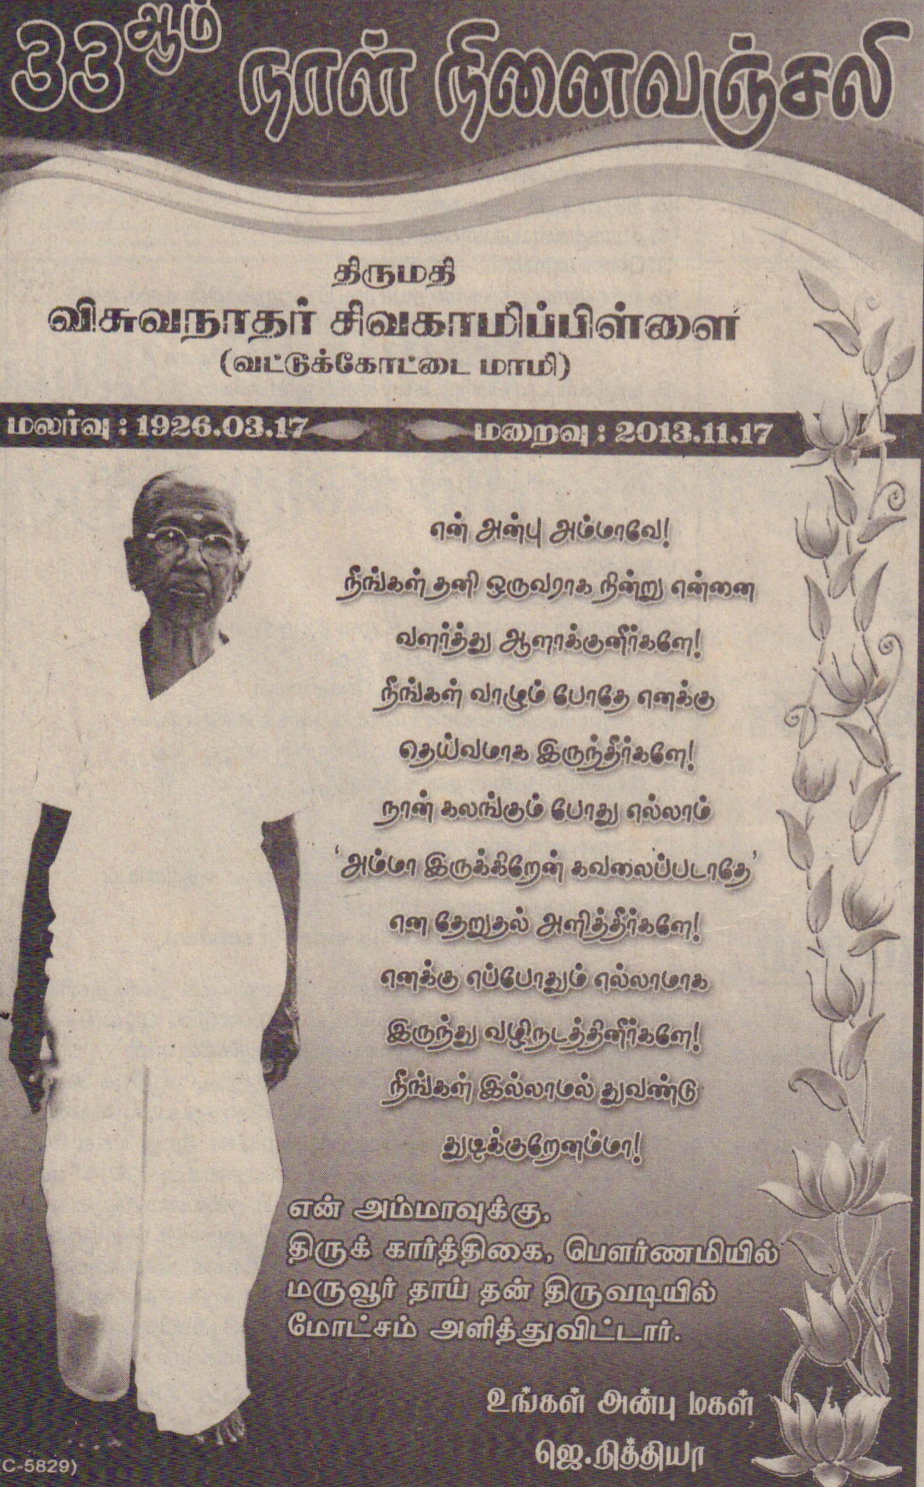 33ஆம் நாள் நினைவஞ்சலி
திருமதி
விசுவநாதர் சிவகாமிப்பிள்ளை
(வட்டுக்கோட்டை மாமி)
மலர்வு : 1926.03.17 மறைவு : 2013.11.17
என் அன்பு அம்மாவே!
நீங்கள் தனி ஒருவராக நின்று என்னை
வளர்த்து ஆளாக்குனீர்களே!
நீங்கள் வாழும் போதே எனக்கு
தெய்வமாக இருந்தீர்களே!
நான் கலங்கும் போது எல்லாம்
'அம்மா இருக்கிறேன் கவலைப்படாதே'
என தேறுதல் அளித்தீர்களே!
எனக்கு எப்போதும் எல்லாமாக
இருந்து வழிநடத்தினீர்களே!
நீங்கள் இல்லாமல் துவண்டு
துடிக்குறேனம்மா!
என் அம்மாவுக்கு,
திருக் கார்த்திகை, பௌர்ணமியில்
மருவூர் தாய் தன் திருவடியில்
மோட்சம் அளித்துவிட்டார்.
உங்கள் அன்பு மகள்
ஜெ.நித்தியா
(C-5829)